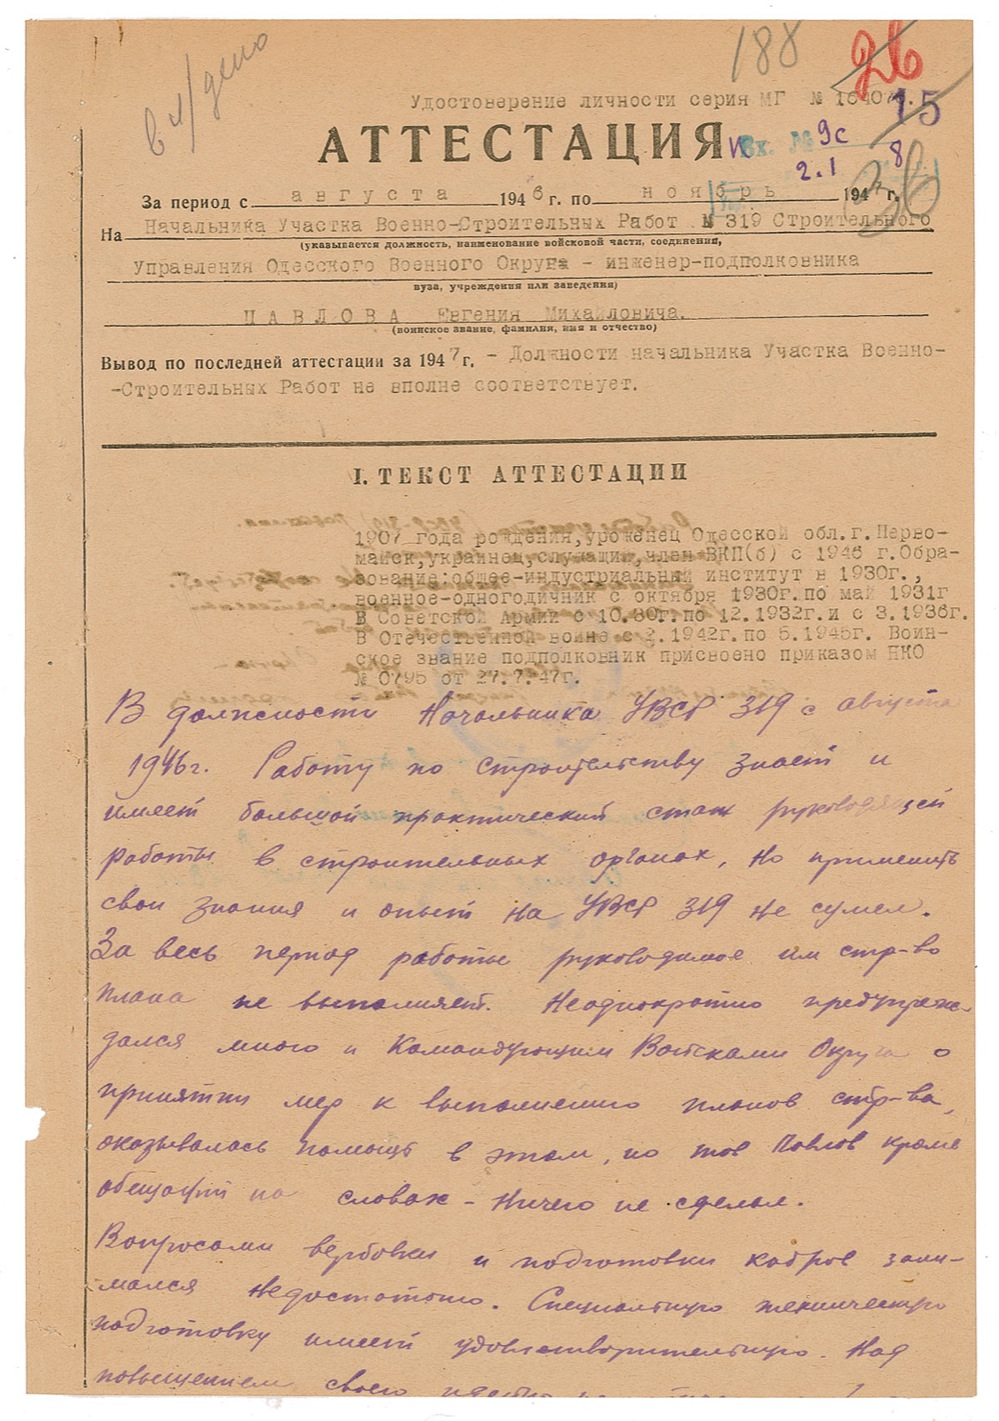 в л/дело
188
26
Удостоверение личности серия МГ №
15
АТТЕСТАЦИЯ
Вх. № 9с
2.1 8
36
За период с августа 1946 г. по ноябрь 1947 г.
На Начальника Участка Военно-Строительных Работ № 319 Строительного
(указывается должность, наименование войсковой части, соединения,
Управления Одесского Военного Округа - инженер-подполковника
вуза, учреждения или заведения)
ПАВЛОВА Евгения Михайловича.
(воинское звание, фамилия, имя и отчество)
Вывод по последней аттестации за 1947 г. - Должности начальника Участка Военно-
-Строительных Работ не вполне соответствует.
I. ТЕКСТ АТТЕСТАЦИИ
1907 года рождения, уроженец Одесской обл. г. Перво-
майск, украинец, служащий, член ВКП(б) с 1946 г. Обра-
зование: общее-индустриальный институт в 1930г.,
военное-одногодичник с октября 1930г. по май 1931г
В Советской Армии с 10.30г. по 12.1932г. и с 3.1936г.
В Отечественной войне с 2.1942г. по 5.1945г. Воин-
ское звание подполковник присвоено приказом НКО
№ 0795 от 27.7.47г.
В должности Начальника УВСР 319 с августа
1946г. Работу по строительству знает и
имеет большой практический стаж руководящей
работы в строительных органах, но применить
свои знания и опыт на УВСР 319 не сумел.
За весь период работы руководимое им стр-во
плана не выполняет. Неоднократно предупреж-
дался мною и Командующим Войсками Округа о
принятии мер к выполнению планов стр-ва,
оказывалась помощь в этом, но тов Павлов кроме
обещаний на словах - ничего не сделал.
Вопросами вербовки и подготовки кадров зани-
мался недостаточно. Специальную техническую
подготовку имеет удовлетворительную. Над
повышением своего